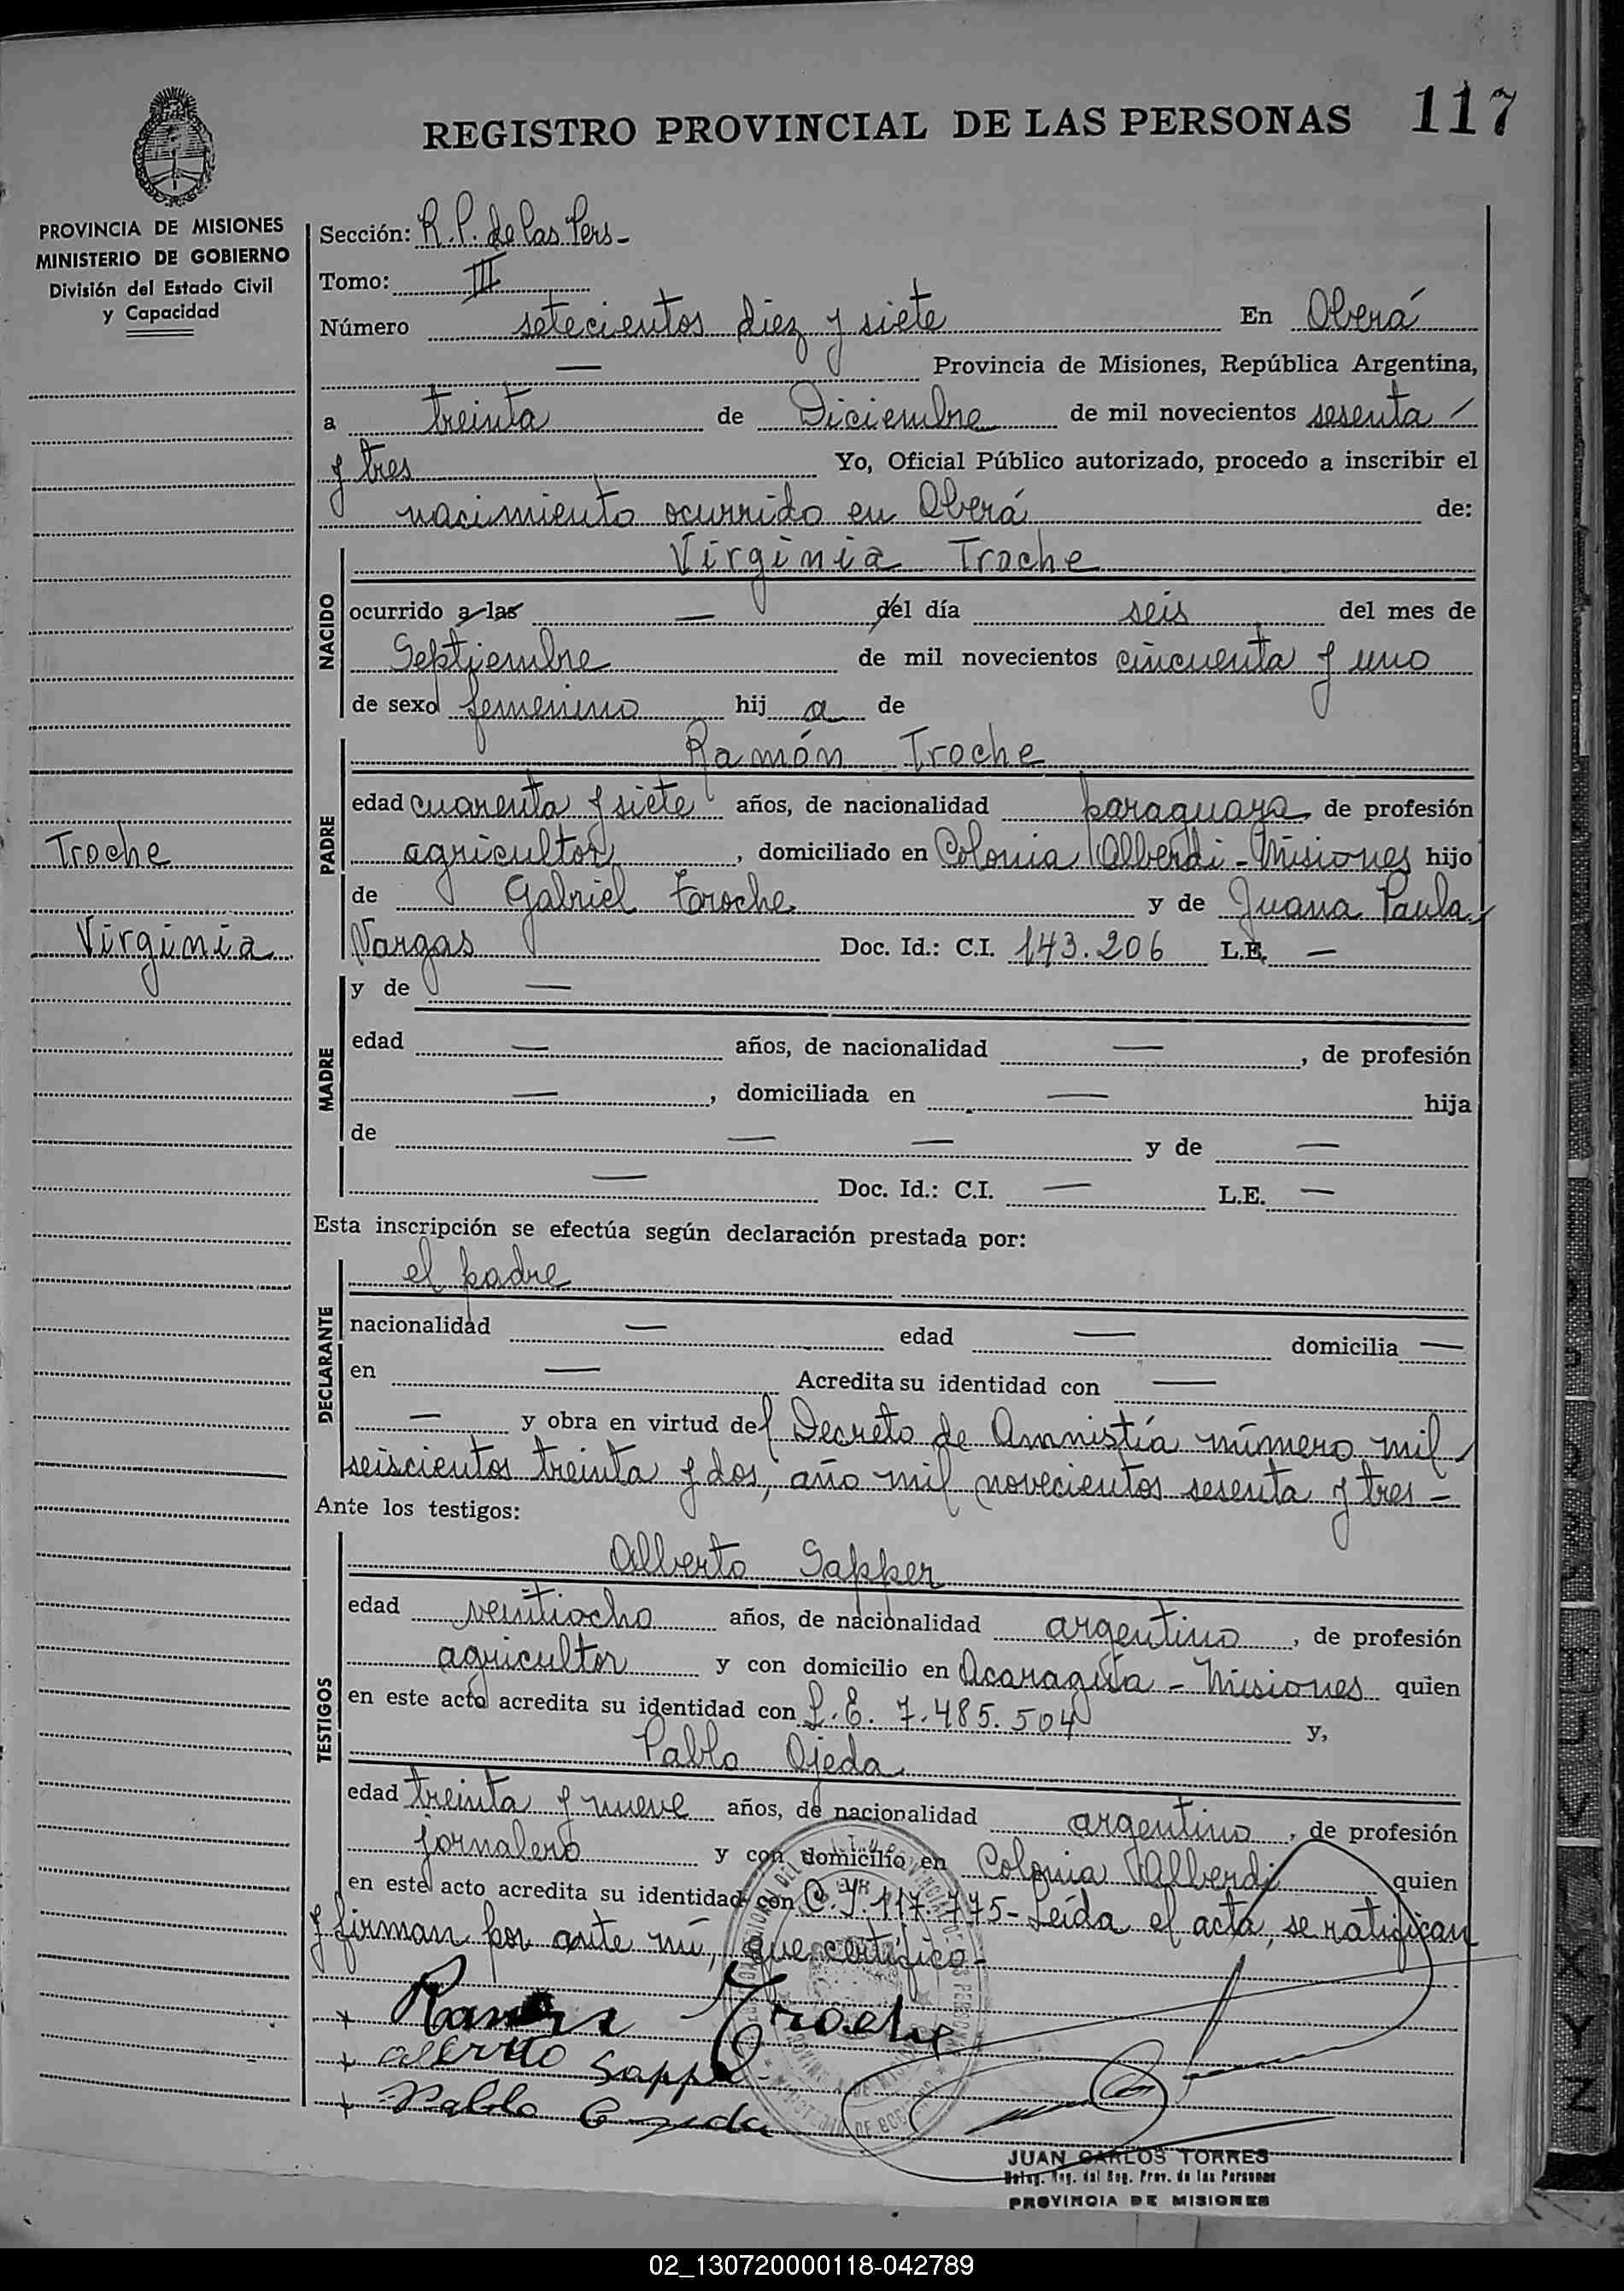 REGISTRO PROVINCIAL DE LAS PERSONAS 117
PROVINCIA DE MISIONES
MINISTERIO DE GOBIERNO
División del Estado Civil
y Capacidad
Troche
Virginia
Sección: R.P. de las Pers-
Tomo: III
Número setecientos diez y siete En Oberá
— Provincia de Misiones, República Argentina,
a treinta de Diciembre de mil novecientos sesenta
y tres Yo, Oficial Público autorizado, procedo a inscribir el
nacimiento ocurrido en Oberá de:
NACIDO
Virginia Troche
ocurrido a las — del día seis del mes de
Septiembre de mil novecientos cincuenta y uno
de sexo femenino hij a de
PADRE
Ramón Troche
edad cuarenta y siete años, de nacionalidad paraguaya de profesión
agricultor, domiciliado en Colonia Alberdi - Misiones hijo
de Gabriel Troche y de Juana Paula
Vargas Doc. Id.: C.I. 143.206 L.E. —
MADRE
y de —
edad — años, de nacionalidad —, de profesión
—, domiciliada en — hija
de — — y de —
— Doc. Id.: C.I. — L.E. —
Esta inscripción se efectúa según declaración prestada por:
DECLARANTE
el padre
nacionalidad — edad — domicilia —
en — Acredita su identidad con —
— y obra en virtud del Decreto de Amnistía número mil
seiscientos treinta y dos, año mil novecientos sesenta y tres -
Ante los testigos:
TESTIGOS
Alberto Sapper
edad veintiocho años, de nacionalidad argentino, de profesión
agricultor y con domicilio en Acaragua - Misiones quien
en este acto acredita su identidad con L.E. 7.485.504 y,
Pablo Ojeda
edad treinta y nueve años, de nacionalidad argentino, de profesión
jornalero y con domicilio en Colonia Alberdi quien
en este acto acredita su identidad con C.I. 117.775- Leída el acta, se ratifican
y firman por ante mí, que certifico-
Ramon Troche
Alberto Sapper
Pablo Ojeda
JUAN CARLOS TORRES
Deleg. Reg. del Reg. Prov. de las Personas
PROVINCIA DE MISIONES
X
Y
Z
02_130720000118-042789